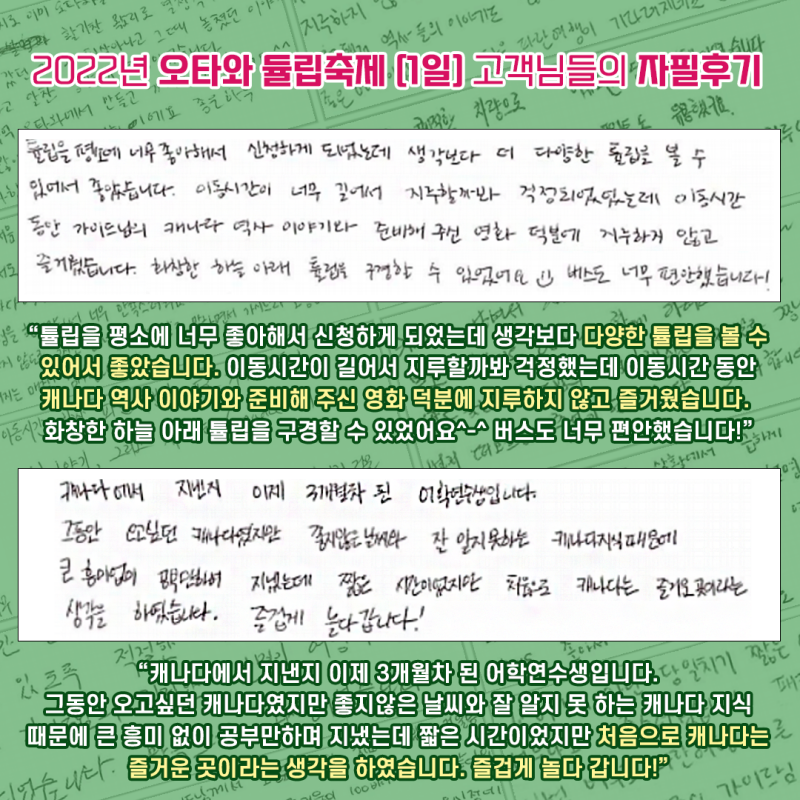 2022년 오타와 튤립축제 (1일) 고객님들의 자필후기
튤립을 평소에 너무 좋아해서 신청하게 되었는데 생각보다 더 다양한 튤립을 볼 수
있어서 좋았습니다. 이동시간이 너무 길어서 지루할까봐 걱정되었었는데 이동시간
동안 가이드님의 캐나다 역사 이야기와 준비해 주신 영화 덕분에 지루하지 않고
즐거웠습니다. 화창한 하늘 아래 튤립을 구경할 수 있었어요 버스도 너무 편안했습니다!
“튤립을 평소에 너무 좋아해서 신청하게 되었는데 생각보다 다양한 튤립을 볼 수
있어서 좋았습니다. 이동시간이 길어서 지루할까봐 걱정했는데 이동시간 동안
캐나다 역사 이야기와 준비해 주신 영화 덕분에 지루하지 않고 즐거웠습니다.
화창한 하늘 아래 튤립을 구경할 수 있었어요^-^ 버스도 너무 편안했습니다!”
캐나다에서 지낸지 이제 3개월차 된 어학연수생입니다.
그동안 오고싶던 캐나다였지만 좋지않은 날씨와 잘 알지 못하는 캐나다지식 때문에
큰 흥미없이 공부만하며 지냈는데 짧은 시간이었지만 처음으로 캐나다는 즐거운 곳이라는
생각을 하였습니다. 즐겁게 놀다갑니다!
“캐나다에서 지낸지 이제 3개월차 된 어학연수생입니다.
그동안 오고싶던 캐나다였지만 좋지않은 날씨와 잘 알지 못 하는 캐나다 지식
때문에 큰 흥미 없이 공부만하며 지냈는데 짧은 시간이었지만 처음으로 캐나다는
즐거운 곳이라는 생각을 하였습니다. 즐겁게 놀다 갑니다!”